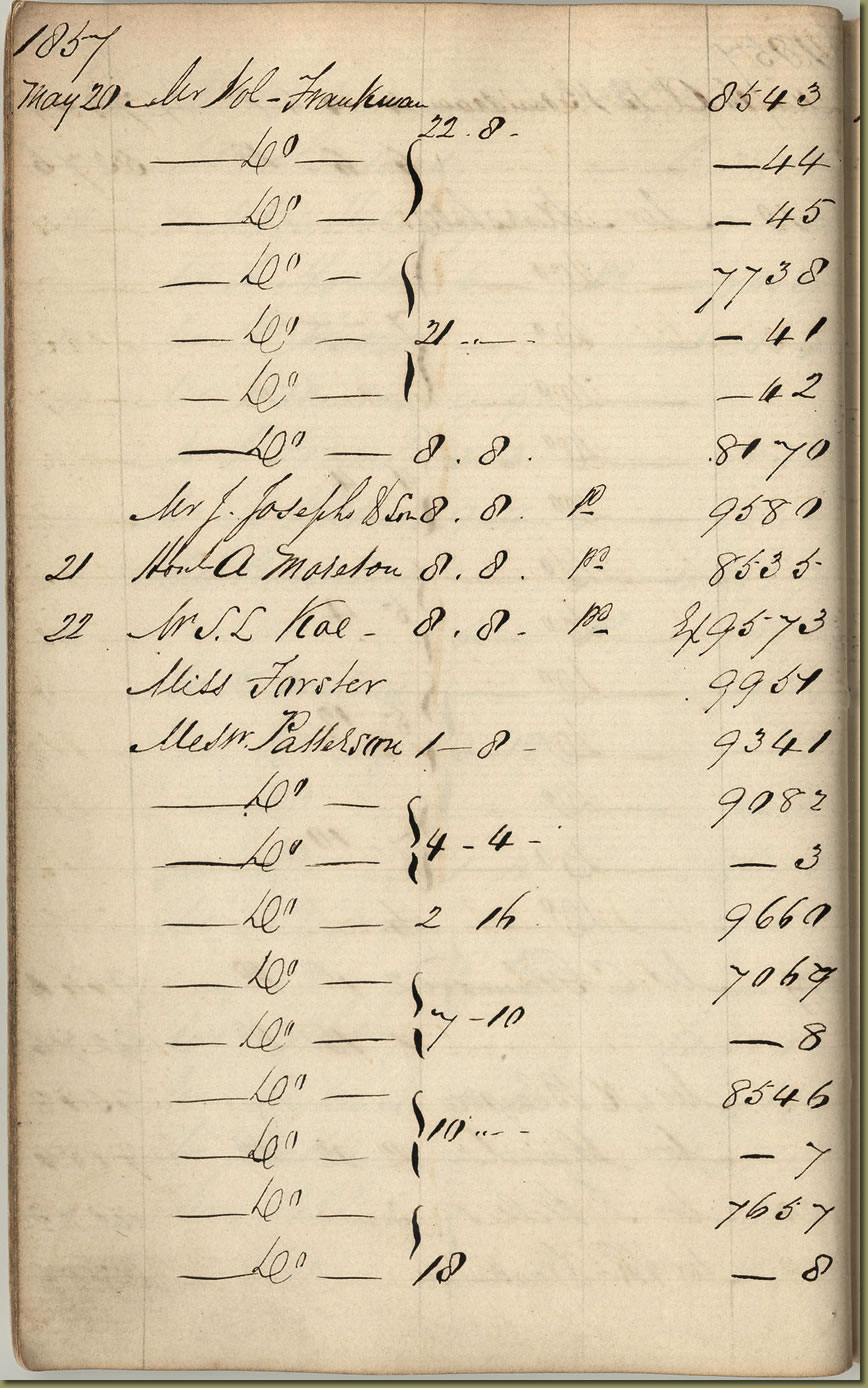 1857
May 20 Mr Vol - Frankum 8543
22 . 8 -
— Do — — 44
— Do — — 45
— Do — 7738
— Do — 21 — - 41
— Do — — 42
— Do — 8 . 8 . 8170
Mr J. Josephs & Son 8 . 8 . pd 9580
21 Honl A Moreton 8 . 8 . pd 8535
22 Mr S. L Koe - 8 . 8 - pd 9573
Miss Forster 9951
Messrs. Patterson 1 — 8 - 9341
— Do — 9082
— Do — 4 - 4 - — 3
— Do — 2 16 9660
— Do — 7067
— Do — 7 - 10 — 8
— Do — 8546
— Do — 10 " — - — 7
— Do — 7657
— Do — 18 — 8